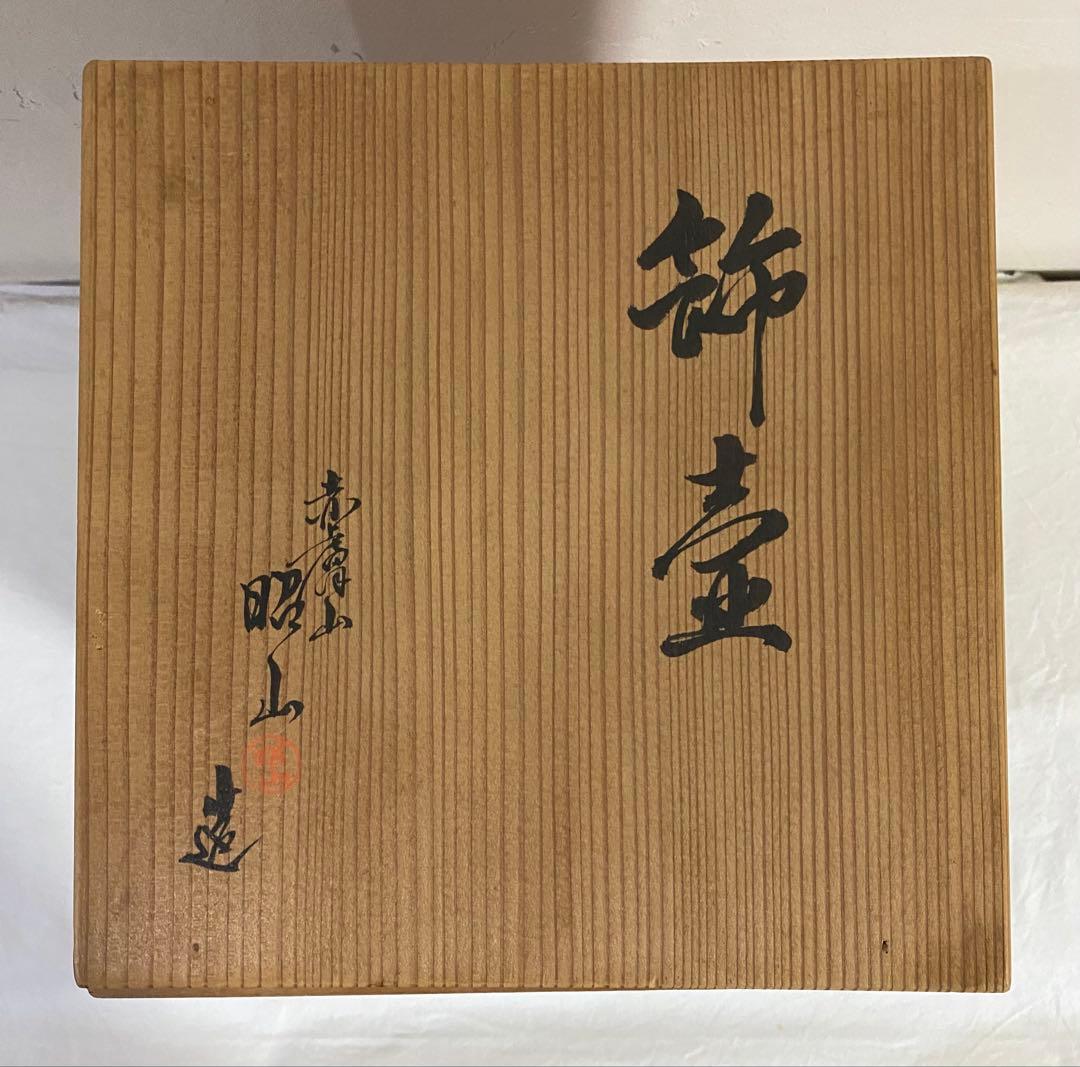 飾壺
赤膚山
昭山
造